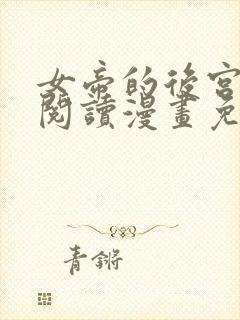 女帝的後宮
閱讀漫畫免
青鏘